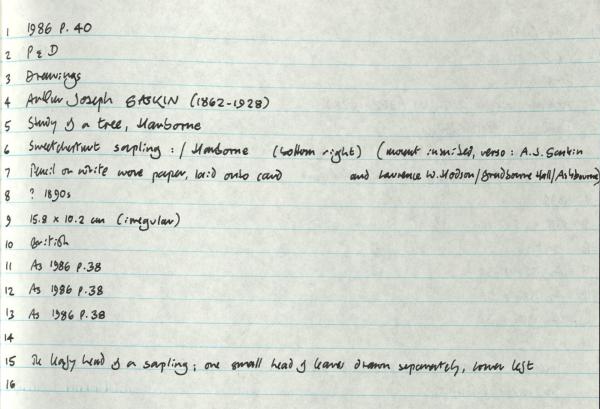 1 1986 P. 40
2 P & D
3 Drawings
4 Arthur Joseph GASKIN (1862-1928)
5 Study of a tree, Harborne
6 Sweetchestnut sapling : / Harborne (bottom right) (mount inscribed, verso : A.J. Gaskin
7 Pencil on white wove paper, laid onto card and Laurence W. Hodson/Bradbourne Hall/Ashbourne)
8 ? 1890s
9 15.8 x 10.2 cm (irregular)
10 British
11 As 1986 P.38
12 As 1986 P.38
13 As 1986 P.38
14
15 The leafy head of a sapling; one small head of leaves drawn separately, lower left
16